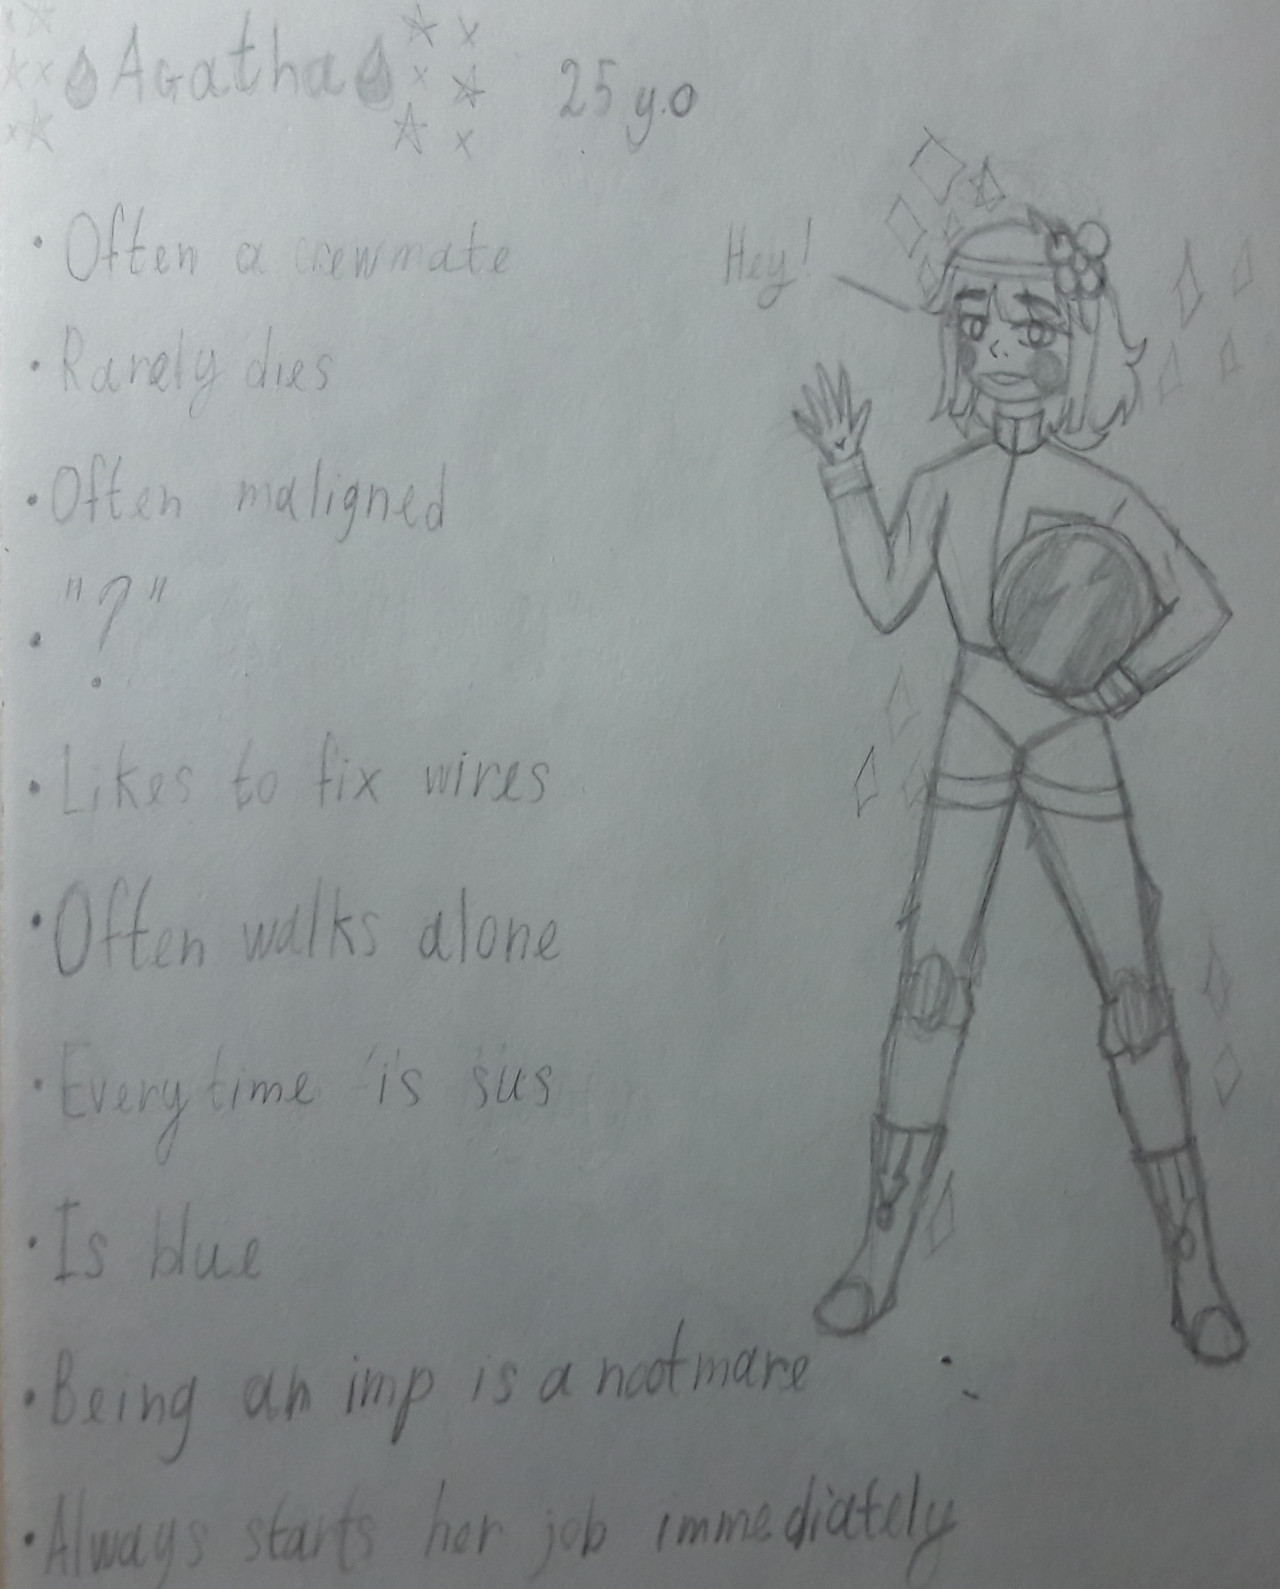 Agatha 25 y.o
• Often a crewmate
Hey!
• Rarely dies
• Often maligned
• "?"
• Likes to fix wires
• Often walks alone
• Everytime 'is sus
• Is blue
• Being an imp is a nootmare
• Always starts her job immediately